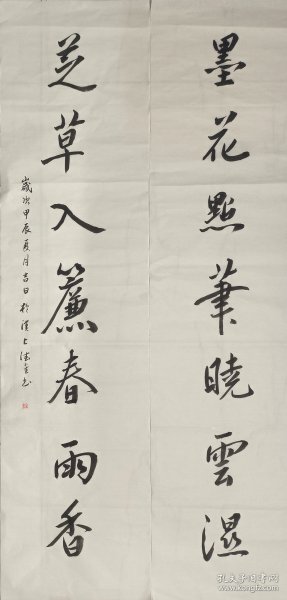 墨花點筆曉雲濕
芝草入簾春雨香
歲次甲辰夏月吉日於漢上
孔夫子旧书网
www.kongfz.com